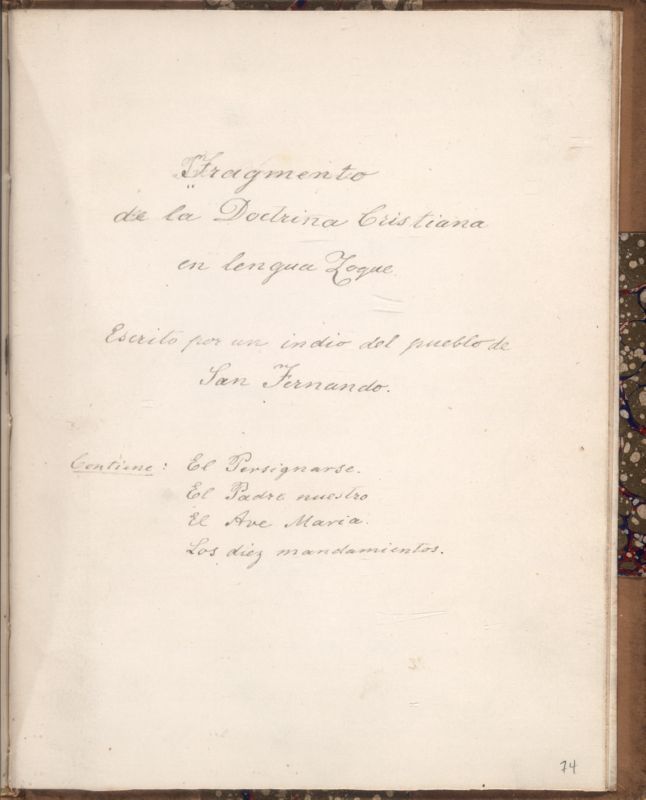 Fragmento
de la Doctrina Cristiana
en lengua Zoque.
Escrito por un indio del pueblo de
San Fernando.
Contiene: El Persignarse.
El Padre nuestro
El Ave Maria.
Los diez mandamientos.
74